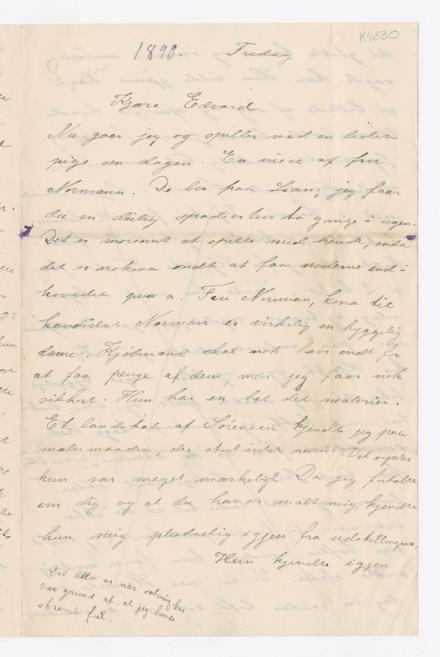 K4830
1890. Fredag
Kjære Edvard
Nu gaar jeg og spiller med en liden
pige om dagen. En niece af fru
Normann. De bor paa Lian, jeg faar
da en deilig spadsertur to gange i ugen.
Det er morsomt at spille med hende, enda
det er nokså ondt at faa noderne ind-
hovedet paa a. Fru Norman, kona til
kandidat Normann er virkelig en hyggelig
dame. Kjøbmand skal nok ha ondt for
at faa penge af dem, men jeg faar nok
sikkert. Hun har en hel del malerier.
Et landskab af Sørensen kjendte jeg paa
malemaaden, der stod intet navn. Det syntes
hun var meget mærkeligt. Da jeg fortalte
om dig, og at du havde malt mig, kjendte
hun mig pludselig igjen fra udstillingen.
Hun kjendte igjen
Det
var grund af, at jeg havde
skrevet feil.